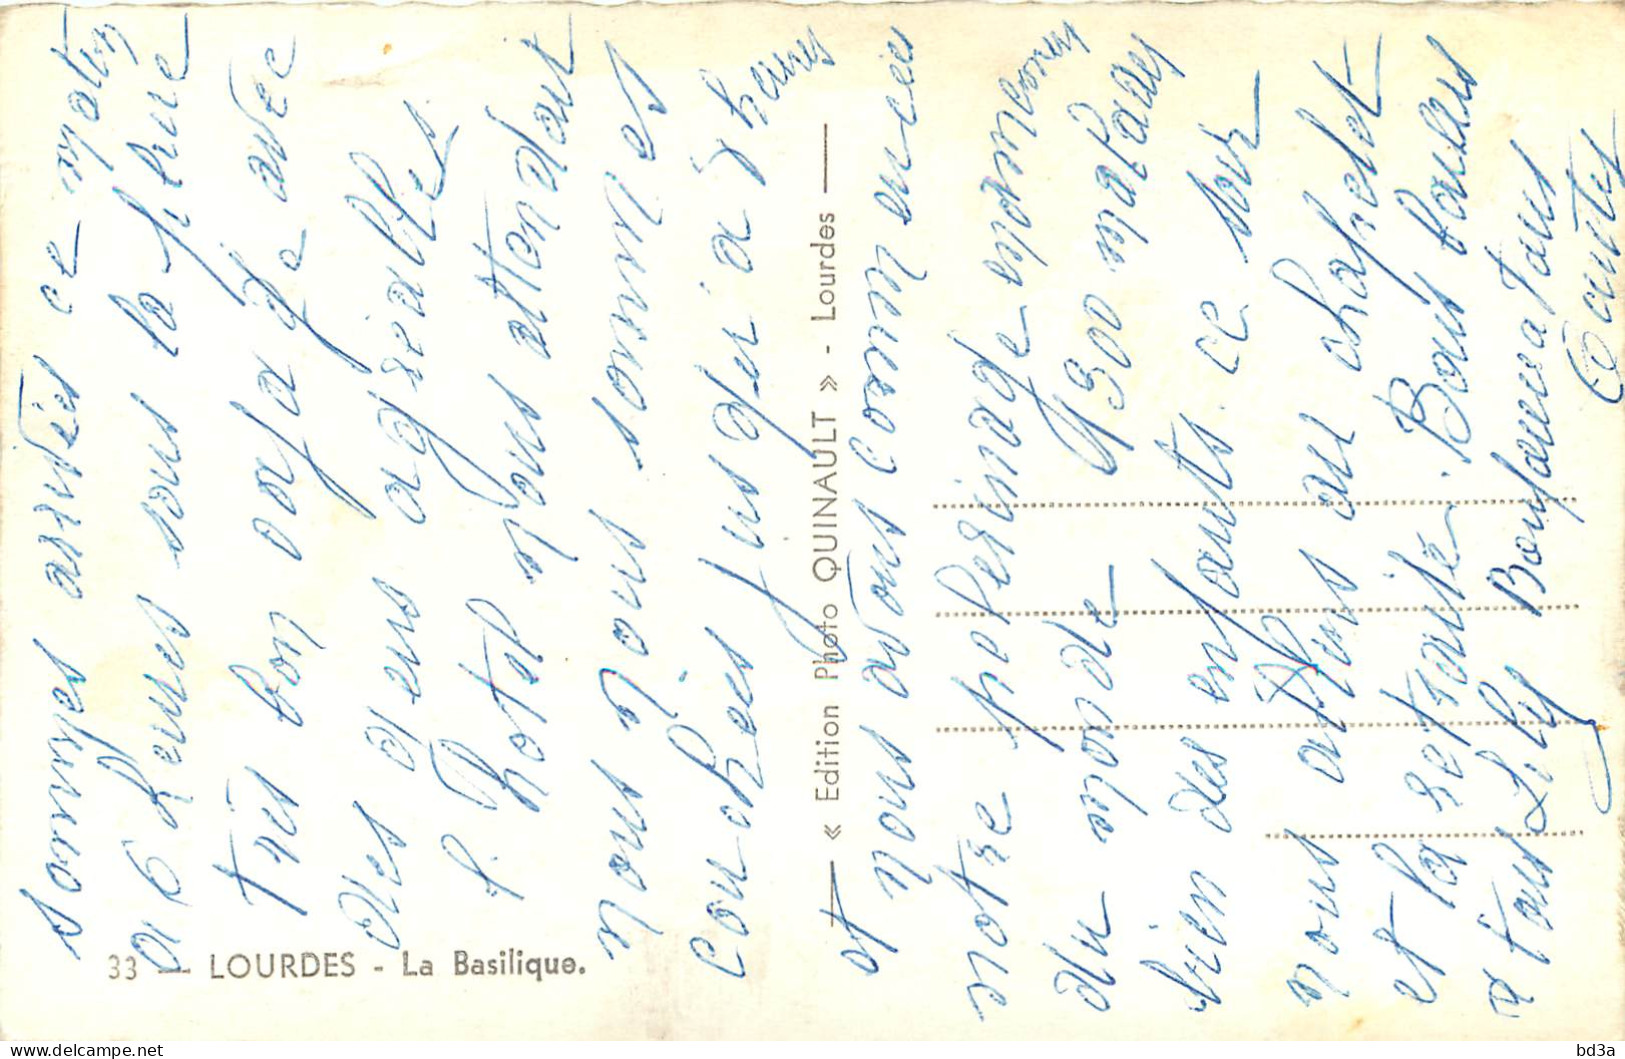 sommes arrivés ce matin
a 6 heures sous la pluie
très bon voyage avec
des gens agréables
l hotel nous attendait
nous nous sommes
couchées jusqu'à 8 heures
et nous avons commencées
notre pelerinage enormement
du monde 1300 malades
bien des enfants. ce soir
nous allons au chapelet
et la retraite. Bons baisers
a tous Lily Bonjour a tous
Toutes
33 — LOURDES - La Basilique.
« Edition Photo QUINAULT » - Lourdes
bd3a